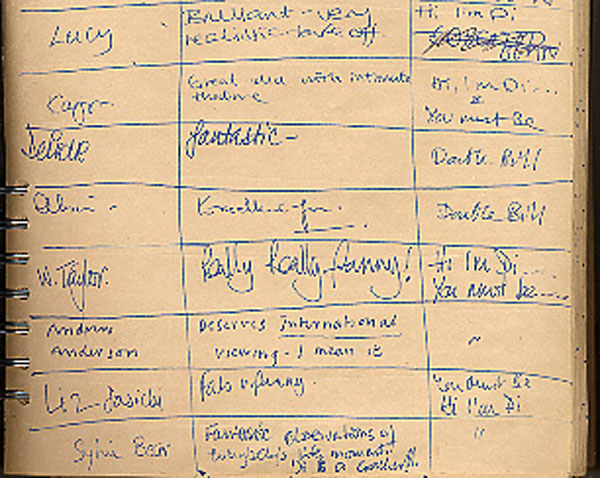 Hi I'm Di
Lucy
Brilliant - very
realistic - take off.
Great idea with intimate
theatre
Hi, I'm Di...
&
You must Be
fantastic -
Double Bill
Excellent fun.
Double Bill
W. Taylor.
Really Really funny!
Hi I'm Di ....
You must be .....
Andrew
Anderson
Deserves international
viewing - I mean it
"
Liz
funny.
You Must Be
Hi I'm Di
Sylvia
Fantastic observations of
life moments!
Di is a
"